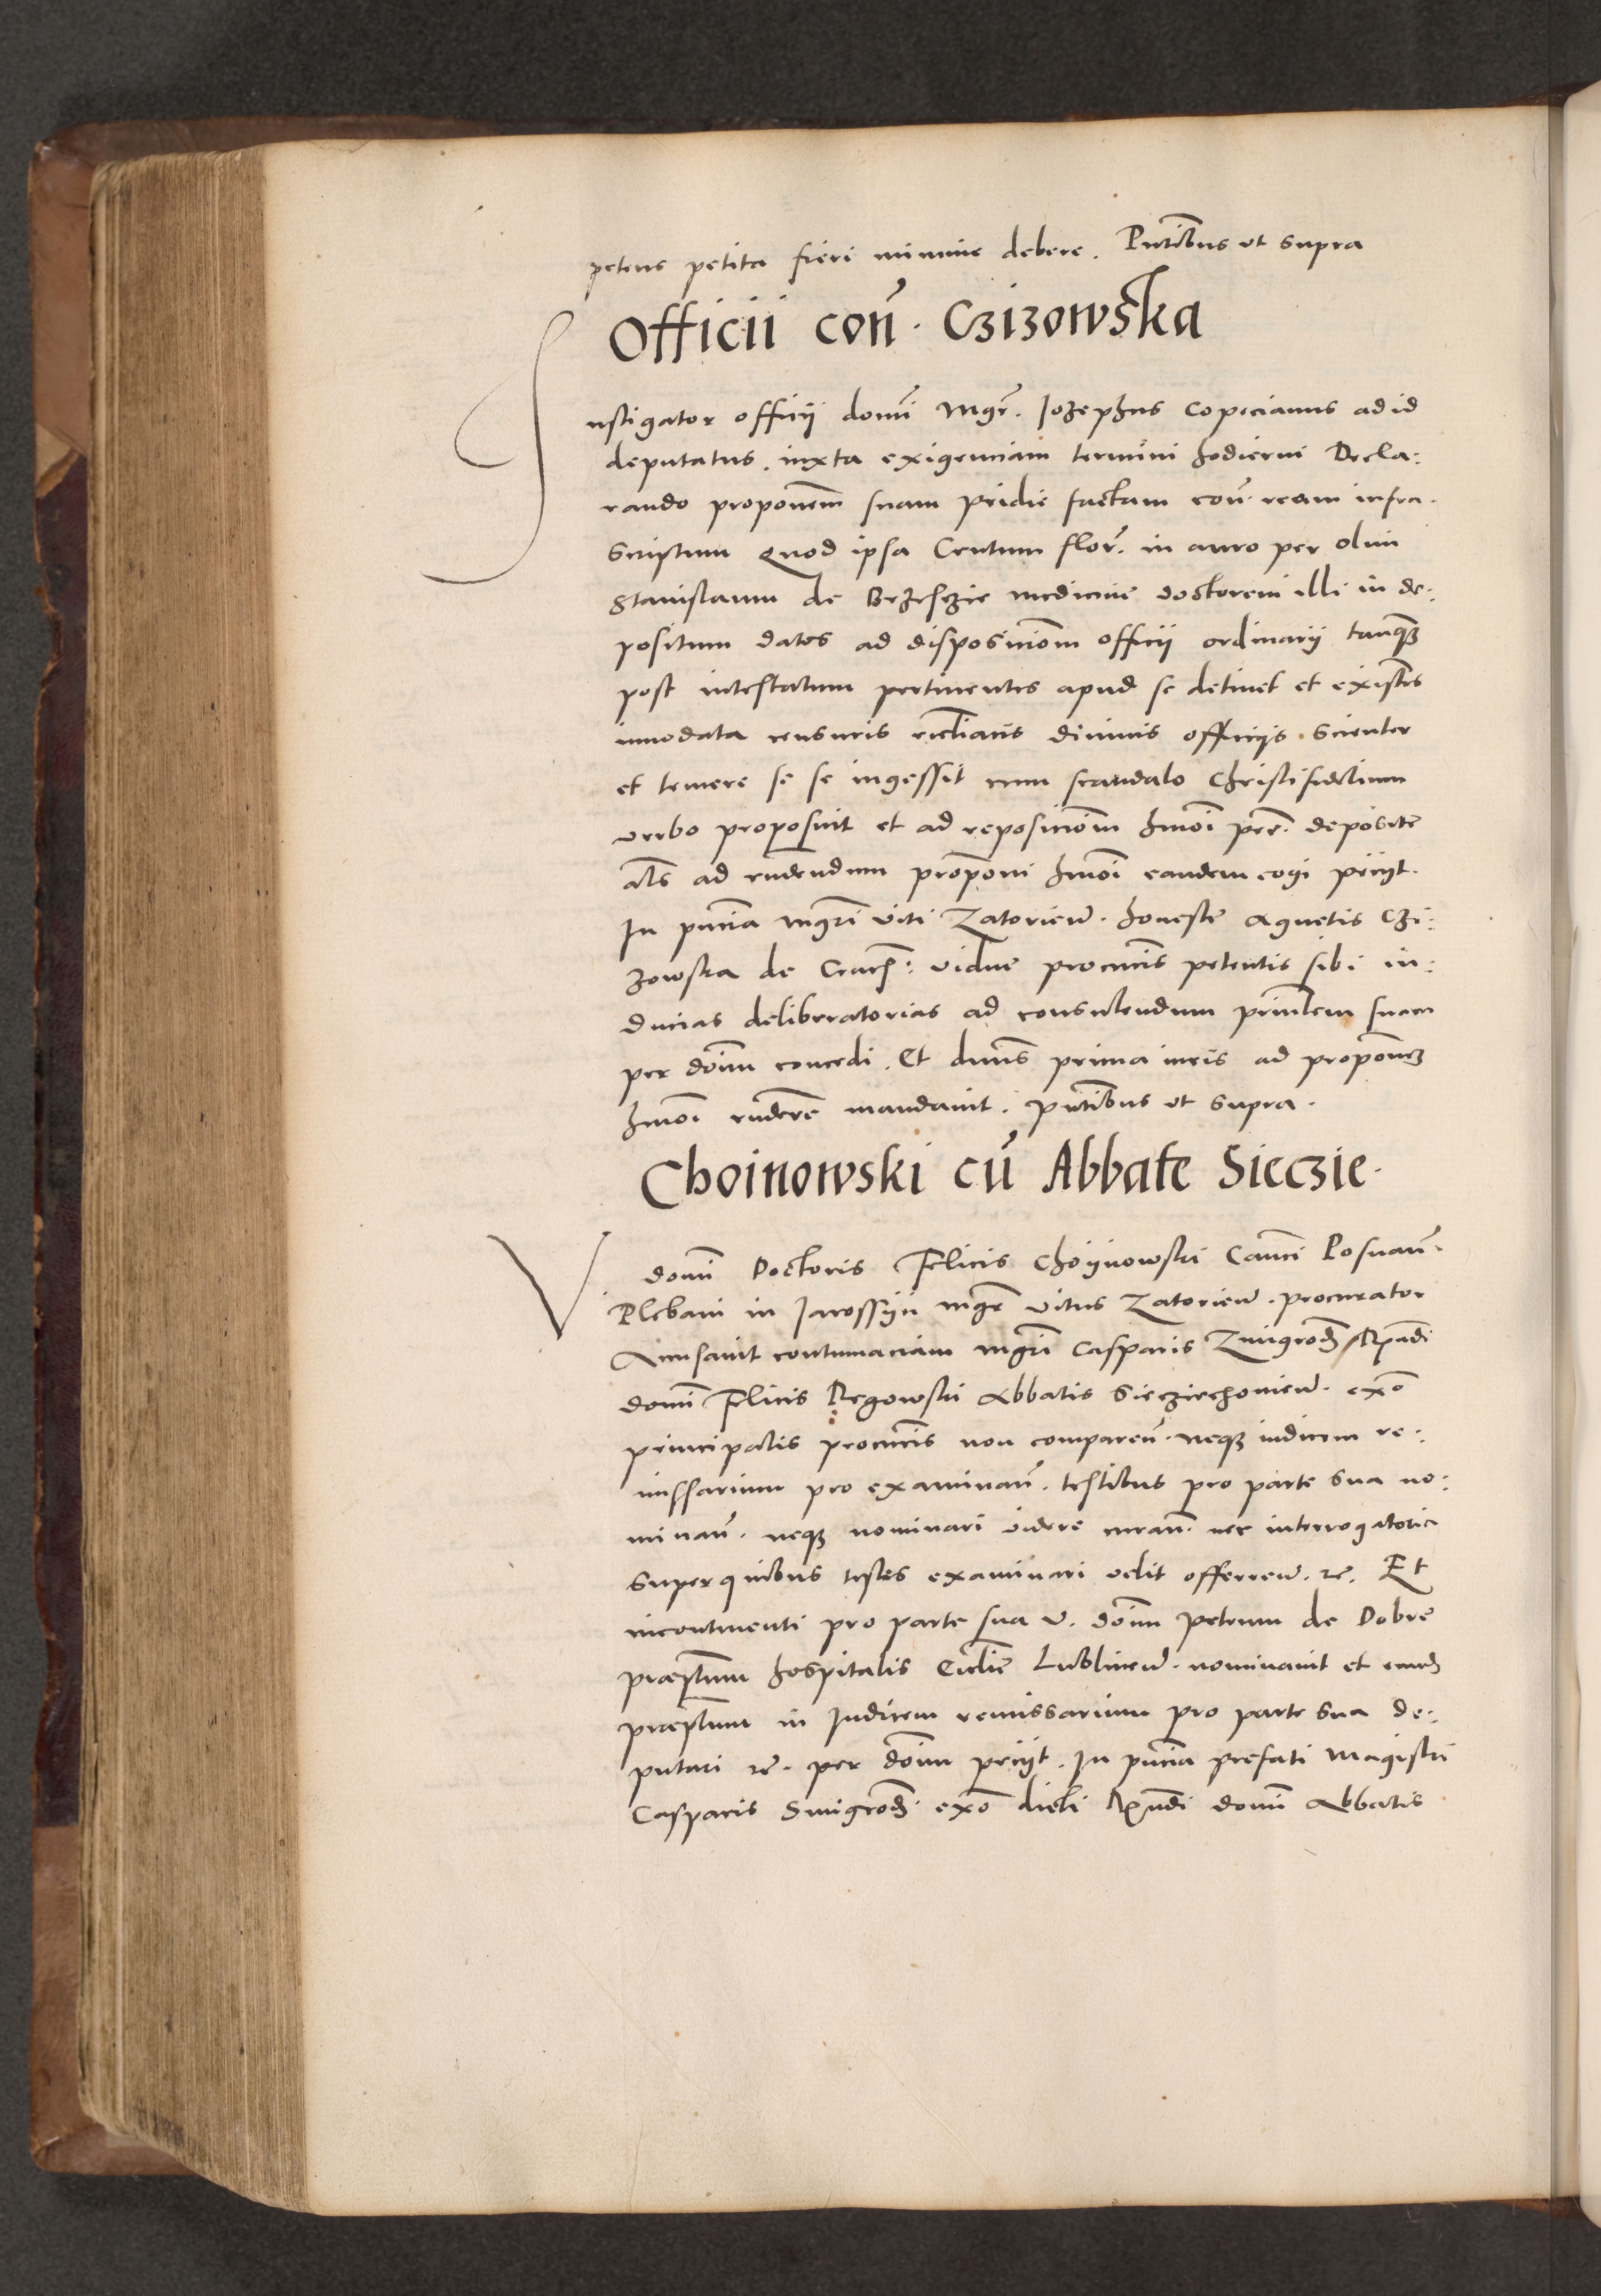 petens petita fieri minime debere. Pntibus ut supra
Officii con̄. Czizowska
Instigator officii domi Mgr. Iozephus Copecianus ad id
deputatus. iuxta exigenciam termini hodierni Decla:
rando proponem̄ suam pridie factam con̄. ream infra.
Scriptum Quod ipsa Centum flor. in auro per olim
Stanislaum de Brzesczie medicine doctorem illi in de:
positum datos ad disposicionem officii ordinarij tanq̄
post intestatum pertinentes apud se detinet et existēs
innodata censuris ecclīacis diuinis officijs scienter
et temere se se ingessit cum scandalo Christifidelium
verbo proposuit et ad reposicionem hmōi pec̄. deposite
als ad rn̄dendum proponi hmōi eandem cogi peciit.
In pn̄cia mgr̄i Viti Zatorien̄. honeste Agnetis Czi:
zowska de Crac̄: vidue procuris petentis sibi in:
ducias deliberatorias ad consulendum prin̄lem suam
per dōm̄ concedi. Et dn̄s prima iuris ad proponē
hmōi rn̄dere mandauit. pn̄tibus ut supra.
Choinowski cū Abbate Sieczie.
V. domī Doctoris Felicis Choynowski Canci Posnan̄.
Plebani in Iarossijn mgr̄ Vitus Zatorien̄. procurator
Accusauit contumaciam mgr̄i Casparis Zmigrod̄ Rn̄di
domī Felicis Regowski Abbatis Siecziechouien̄. ex̄o
principalis procuris non comparen̄. neq̄ iudicem re:
missarium pro examinan̄. testibus pro parte sua no:
minan̄. neq̄ nominari videre curan̄. nec interrogatoria
super quibus testes examinari velit offerren̄. rc̄. Et
incontinenti pro parte sua v. dōm̄ petrum de Dobre
præptum hospitalis Ecclie Lublinen̄. nominauit et eund̄
præptum in Iudicem remissarium pro parte sua de:
putari rc̄. per dōm̄ peciit. In pn̄cia prefati Magistri
Casparis Smigrod̄. ex̄o dicti Rn̄di domī Abbatis